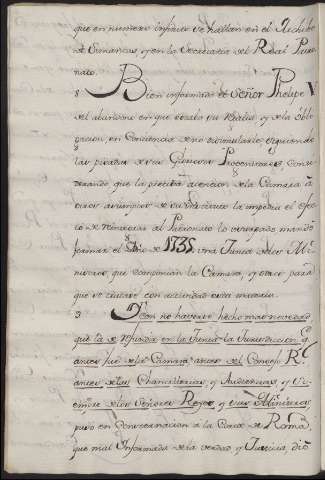 que en numero infinito se hallan en el Archibo
de Simancas, y en la Secretaria del Real Patro
nato.
8 Bien informado el Señor Phelipe V
del abandono en que estaba su Real y de la obli
gacion en Conciencia de no disimularlo, siguiendo
las pisadas de sus Gloriosos Progenitores, consi
derando que la precisa atencion de la Camara à
otros asumptos de su instituto la impedia el efec
to de reintegrar al Patronato lo usurpado mandò
formar el Año de 1735. una Junta de los Mi
nistros que componian la Camara, y otros para
que se tratase con actividad esta materia.
9 Y con no haverse hecho mas novedad
que la de refundir en la Junta la Jurisdiccion q.
antes fue de la Camara antes del Consejo R.
antes de las Chancillerias, y Audiencias, y si
empre de los Señores Reyes, y sus Ministros,
puso en Consternacion à la Corte de Roma,
que mal Informada de la verdad y Justicia, diò